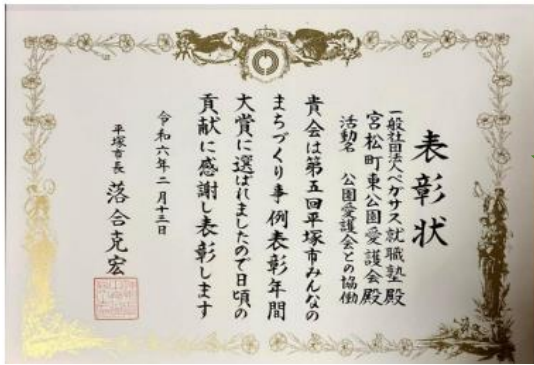 表彰状
一般社団法人ペガサス就職塾殿
宮松町東公園愛護会殿
活動名　公園愛護会との協働
貴会は第五回平塚市みんなの
まちづくり事例表彰年間
大賞に選ばれましたので日頃の
貢献に感謝し表彰します
令和六年二月十三日
平塚市長　落合克宏